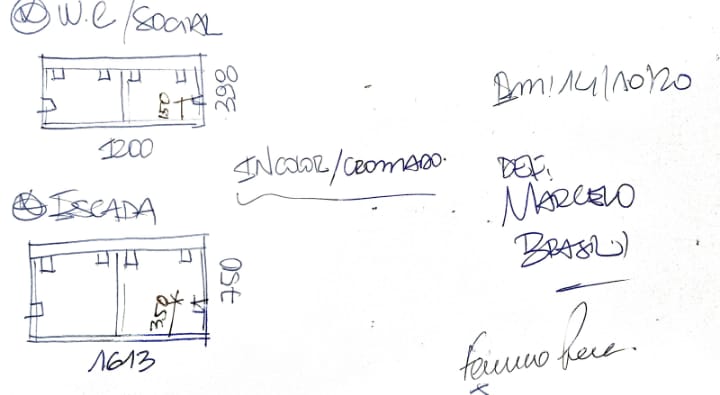 W.C/SOCIAL
390
150
1200
Em: 14/10/20
INCOLOR/CROMADO.
REF:
MARCELO
BRASIL
ESCADA
750
350
1613